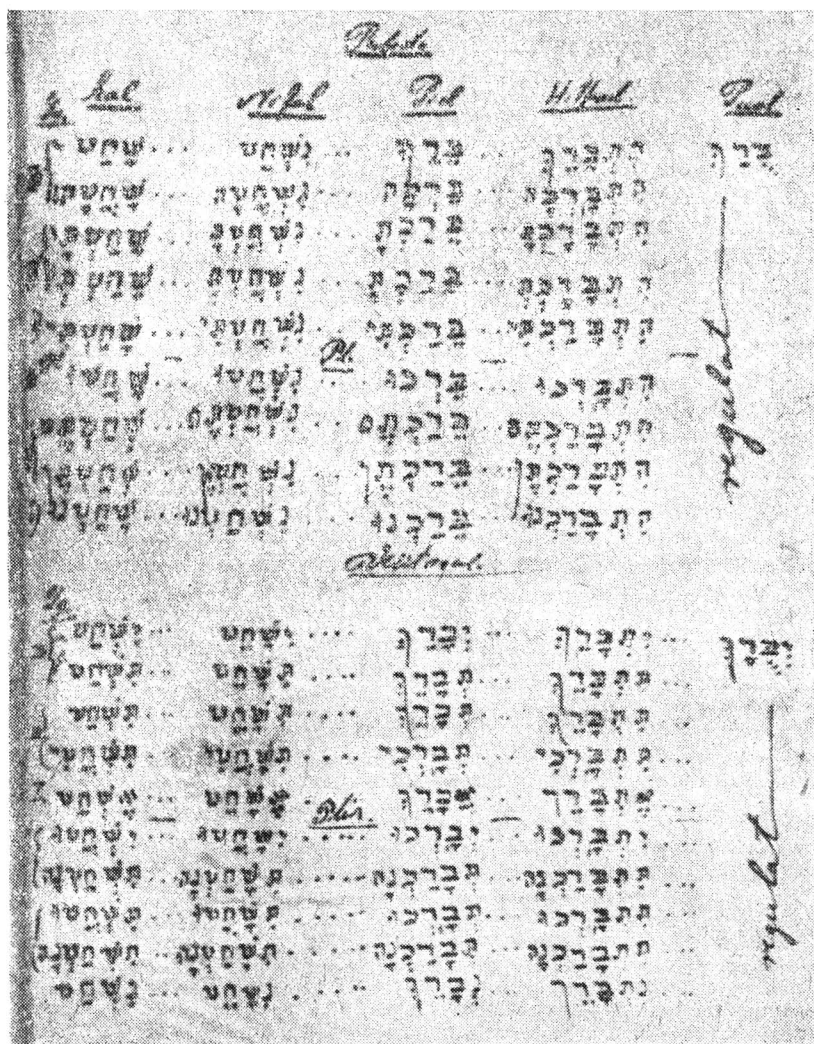 Kal Nifal Piel Hitpael Pual
שָׁחַט ... נִשְׁחַט .... בֵּרַךְ ... הִתְבָּרֵךְ בֹּרַךְ
שָׁחֲטָה ... נִשְׁחֲטָה ... בֵּרְכָה ... הִתְבָּרְכָה
שָׁחַטְתָּ ... נִשְׁחַטְתָּ ... בֵּרַכְתָּ ... הִתְבָּרַכְתָּ
שָׁחַטְתְּ ... נִשְׁחַטְתְּ ... בֵּרַכְתְּ ... הִתְבָּרַכְתְּ
שָׁחַטְתִּי ... נִשְׁחַטְתִּי ... בֵּרַכְתִּי ... הִתְבָּרַכְתִּי
Pl.
שָׁחֲטוּ ... נִשְׁחֲטוּ ... בֵּרְכוּ ... הִתְבָּרְכוּ
שְׁחַטְתֶּם ... נִשְׁחַטְתֶּם ... בֵּרַכְתֶּם ... הִתְבָּרַכְתֶּם
שְׁחַטְתֶּן ... נִשְׁחַטְתֶּן ... בֵּרַכְתֶּן ... הִתְבָּרַכְתֶּן
שָׁחַטְנוּ ... נִשְׁחַטְנוּ ... בֵּרַכְנוּ ... הִתְבָּרַכְנוּ
regulat
יִשְׁחַט ... יִשָּׁחֵט .... יְבָרֵךְ ... יִתְבָּרֵךְ ... יְבֹרַךְ
תִּשְׁחַט ... תִּשָּׁחֵט .... תְּבָרֵךְ ... תִּתְבָּרֵךְ ...
תִּשְׁחַט ... תִּשָּׁחֵט .... תְּבָרֵךְ ... תִּתְבָּרֵךְ ...
תִּשְׁחֲטִי ... תִּשָּׁחֲטִי .... תְּבָרְכִי ... תִּתְבָּרְכִי ...
אֶשְׁחַט ... אֶשָּׁחֵט אֲבָרֵךְ ... אֶתְבָּרֵךְ ...
יִשְׁחֲטוּ ... יִשָּׁחֲטוּ .... יְבָרְכוּ ... יִתְבָּרְכוּ ...
תִּשְׁחַטְנָה ... תִּשָּׁחַטְנָה .... תְּבָרֵכְנָה ... תִּתְבָּרֵכְנָה ...
תִּשְׁחֲטוּ ... תִּשָּׁחֲטוּ .... תְּבָרְכוּ ... תִּתְבָּרְכוּ ...
תִּשְׁחַטְנָה ... תִּשָּׁחַטְנָה .... תְּבָרֵכְנָה ... תִּתְבָּרֵכְנָה ...
נִשְׁחַט ... נִשָּׁחֵט .... נְבָרֵךְ ... נִתְבָּרֵךְ ...
regulat